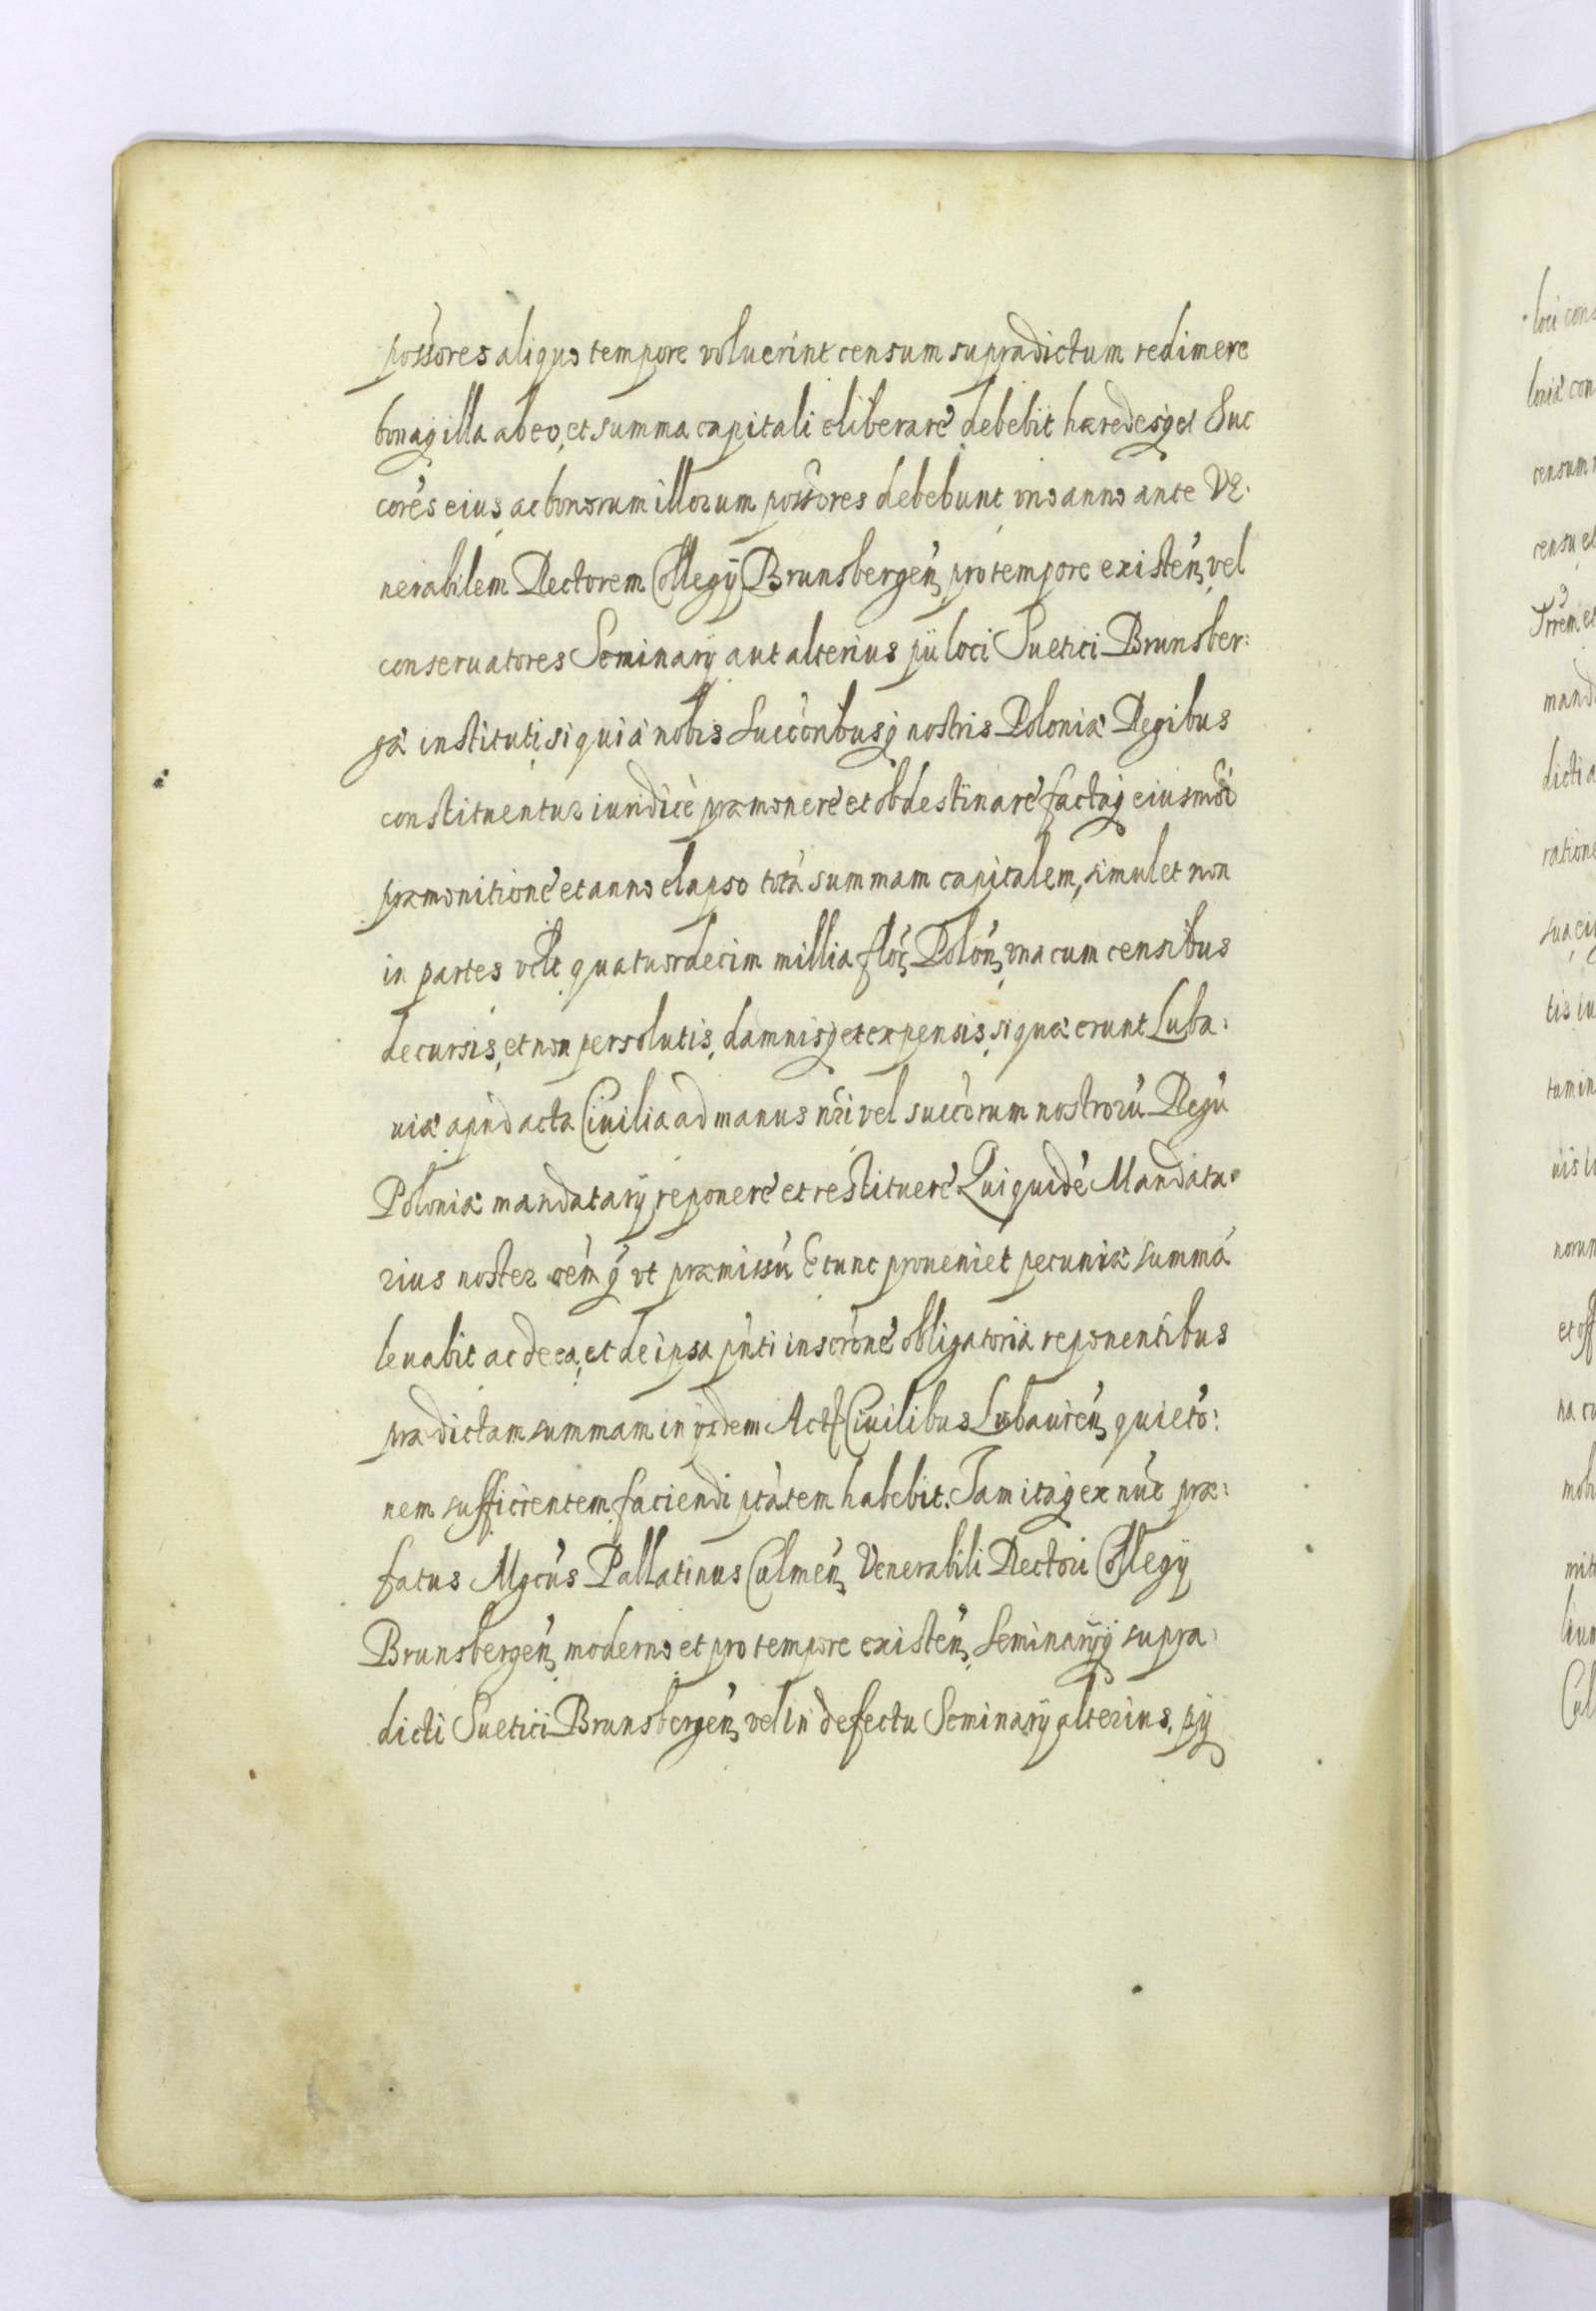 possores aliquo tempore voluerint censum supradictum redimere
bonaq̃ illa ab eo, et summa capitali eliberare, debebit hæredesq̃ et Suc
cores eius ac bonorum illorum possores debebunt vno anno ante Ve:
nerabilem Rectorem Collegÿ Brunsbergeñ pro tempore existeñ, vel
conseruatores Seminarÿ aut alterius pÿ loci Suetici Brunsber:
gæ instituti, si qui à nobis Succoribusq̃ nostris Poloniæ Regibus
constituentur iuridicè præmonere et obdestinare factaq̃ eiusmõi
præmonitione et anno elapso totã summam capitalem, simul et non
in partes vctt quatuordecim millia floŗ Poloñ, vna cum censibus
decursis, et non persolutis, damnisq̃ et expensis, si quæ erunt Luba:
uiæ apud acta Ciuilia ad manus nr̃i vel succorum nostrorũ Regũ
Poloniæ mandatarÿ reponere et restituere Qui quidẽ Mandata:
rius noster rem q̃ vt præmissũ Etunc proueniet pecuniæ summã
leuabit ac de ea, et de ipsa pñti inscrone obligatoria reponentibus
prædictam summam in ÿsdem Actis Ciuilibus Lubauieñ, quieto:
nem sufficientem faciendi ptãtem habebit. Iam itaq̃ ex nũc præ:
fatus Mgcũs Pallatinus Culmeñ, Venerabili Rectori Collegÿ
Brunsbergeñ, moderno et pro tempore existeñ, Seminarÿq̃ supra:
dicti Suetici Brunsbergeñ, vel in defectu Seminarÿ alterius, pÿ
loci cons
loniæ con
censum
censu et
mand
dicti a
ratione
sua
tis
tumin
uis
norum
et off
na
mob
mitt
lium
Cul